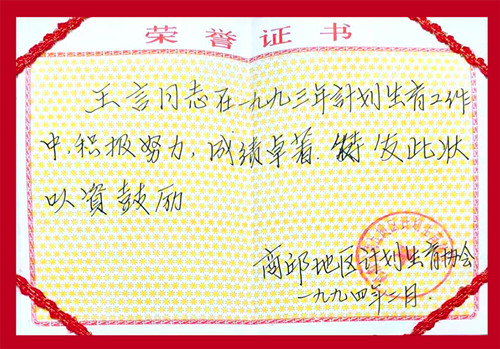 荣誉证书
王言同志在一九九三年計划生育工作
中,积极努力,成绩卓著.特发此状
以资鼓励
商邱地区计划生育协会
一九九四年二月.